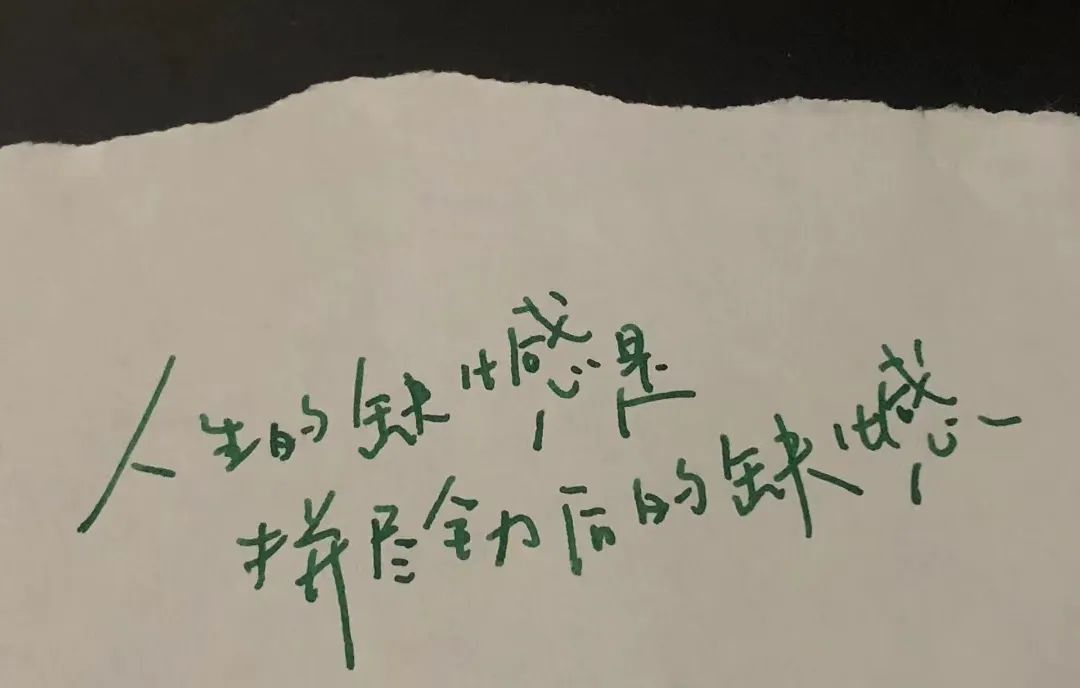 人生的缺憾是
拼尽全力后的缺憾